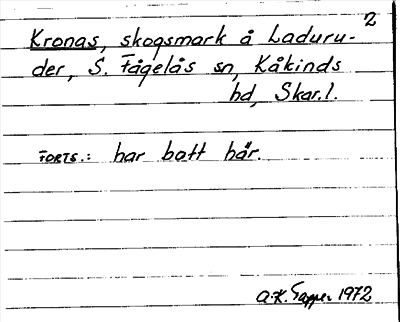 2
Kronas, skogsmark å Laduru-
der, S. Fågelås sn, Kåkinds
hd, Skar.l.
FORTS.: har bott här.
A-K. Tapper 1972